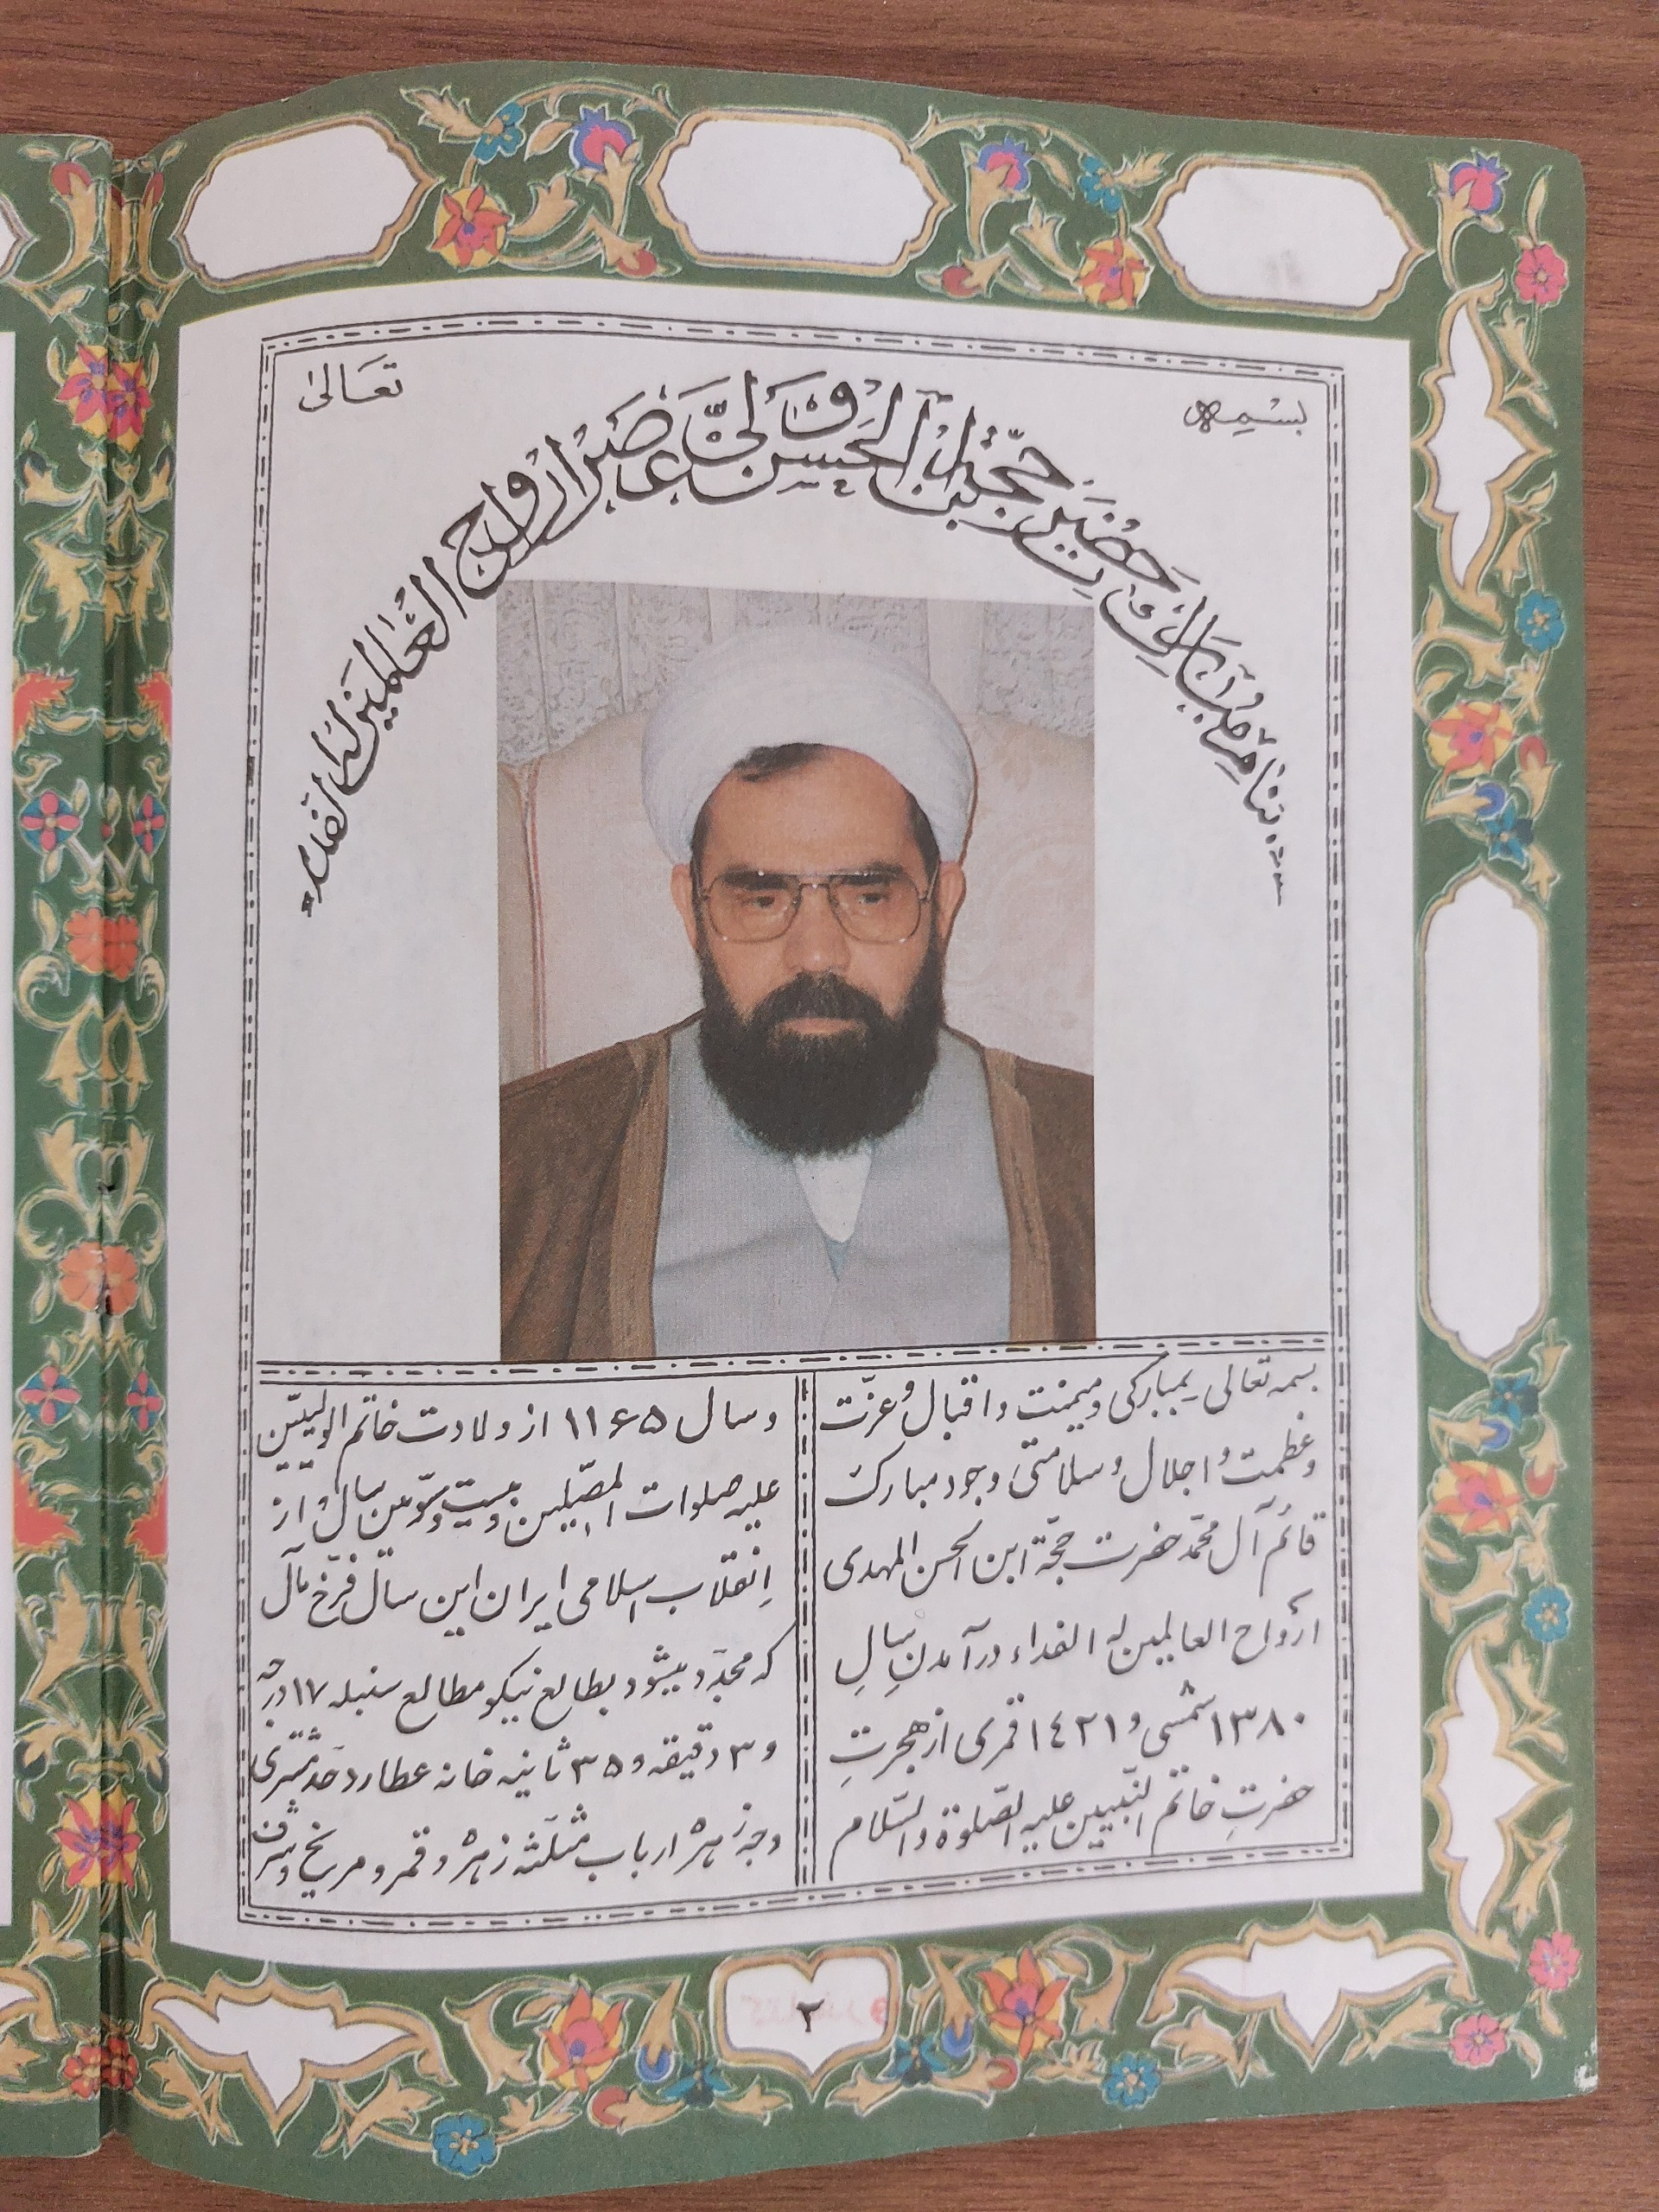 بسمه تعالیٰ
بنام صاحب الزمان حضرت حجّة بن الحسن ولیّ عصر ارواح العالمین له الفداء
بسمه تعالی بمبارکی و میمنت و اقبال و عزّت
و عظمت و اجلال و سلامتی وجود مبارک
قائم آل محمّد حضرت حجّة ابن الحسن المهدی
ارواح العالمین له الفداء درآمدن سالِ
۱۳۸۰ شمسی و ۱٤۲۱ قمری از هجرتِ
حضرتِ خاتم النّبیین علیه الصّلوة والسّلام
و سال ۱۱۶۵ از ولادت خاتم الولییّن
علیه صلوات المصّلین و بیست و سّومین سال از
اِنقلاب اسلامی ایران این سال فرّخ مآل
که مجدّد میشود بطالع نیکو مطالع سنبله ۱۷ درجه
و ۳ دقیقه و ۳۵ ثانیه خانه عطارد حَد مُشتری
وجه زهره ارباب مثلّثه زهره و قمر و مریخ و شرف
۲